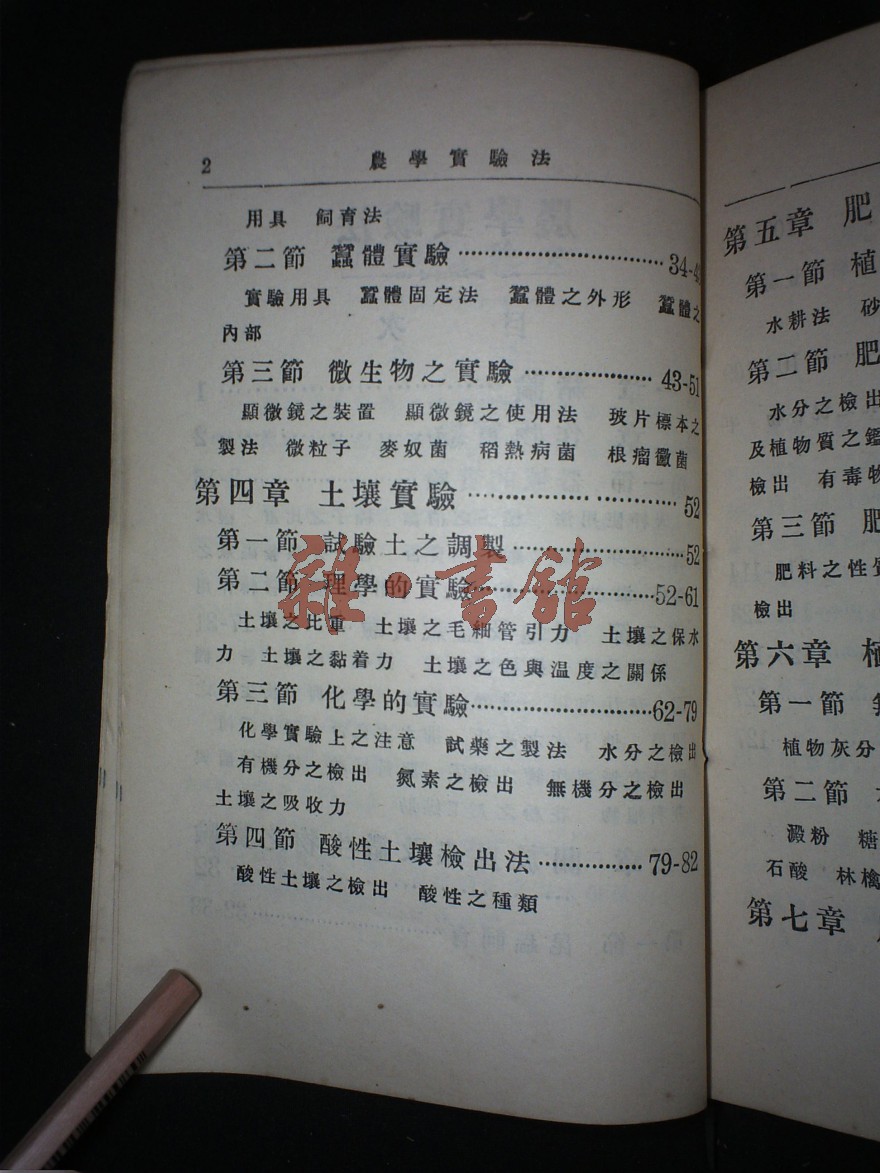 2
農學實驗法
用具 飼育法
第二節 蠶體實驗……34-4
實驗用具 蠶體固定法 蠶體之外形 蠶體之
內部
第三節 微生物之實驗……43-51
顯微鏡之裝置 顯微鏡之使用法 玻片標本之
製法 微粒子 麥奴菌 稻熱病菌 根瘤黴菌
第四章 土壤實驗……52
第一節 試驗土之調製……52
第二節 理學的實驗……52-61
土壤之比重 土壤之毛細管引力 土壤之保水
力 土壤之黏着力 土壤之色與温度之關係
第三節 化學的實驗……62-79
化學實驗上之注意 試藥之製法 水分之檢出
有機分之檢出 氮素之檢出 無機分之檢出
土壤之吸收力
第四節 酸性土壤檢出法……79-82
酸性土壤之檢出 酸性之種類
雜·書館
第五章 肥
第一節 植
水耕法 砂
第二節 肥
水分之檢出
及植物質之鑑
檢出 有毒物
第三節 肥
肥料之性質
檢出
第六章 植
第一節
植物灰分
第二節
澱粉 糖
石酸 林檎
第七章